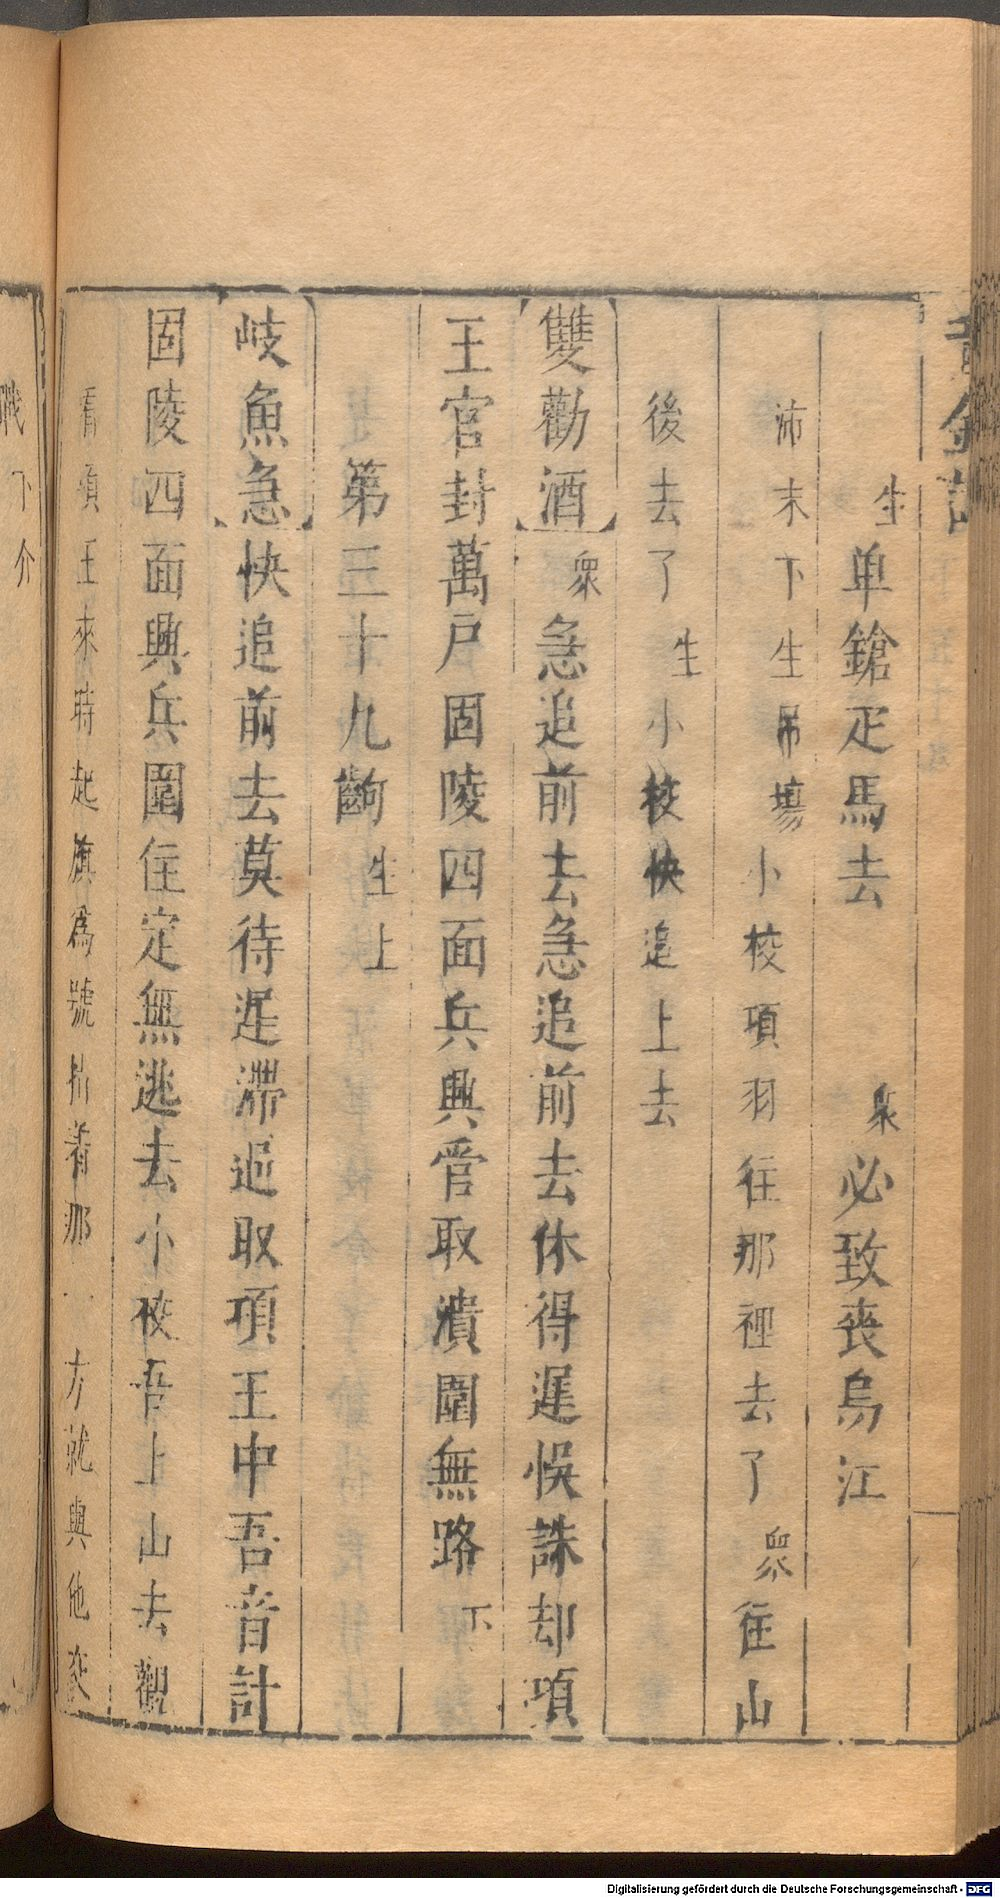 生 単鎗疋馬去 衆 必致喪烏江
沛末下生吊塲 小校項羽往那裡去了 衆 往山
後去了 生 小校快追上去
雙勸酒 衆 急追前去急追前去休得遲悞誅却項
王官封萬戶固陵四面兵興管取潰圍無路 下
第三十九齣 生上
岐魚急 快追前去莫待遲滯逥取項王中吾音計
固陵四面興兵圍住定無逃去小校吾上山去觀
看項王來時起旗爲號指着那一方就與他
職下介
Digitalisierung gefördert durch die Deutsche Forschungsgemeinschaft - DFG